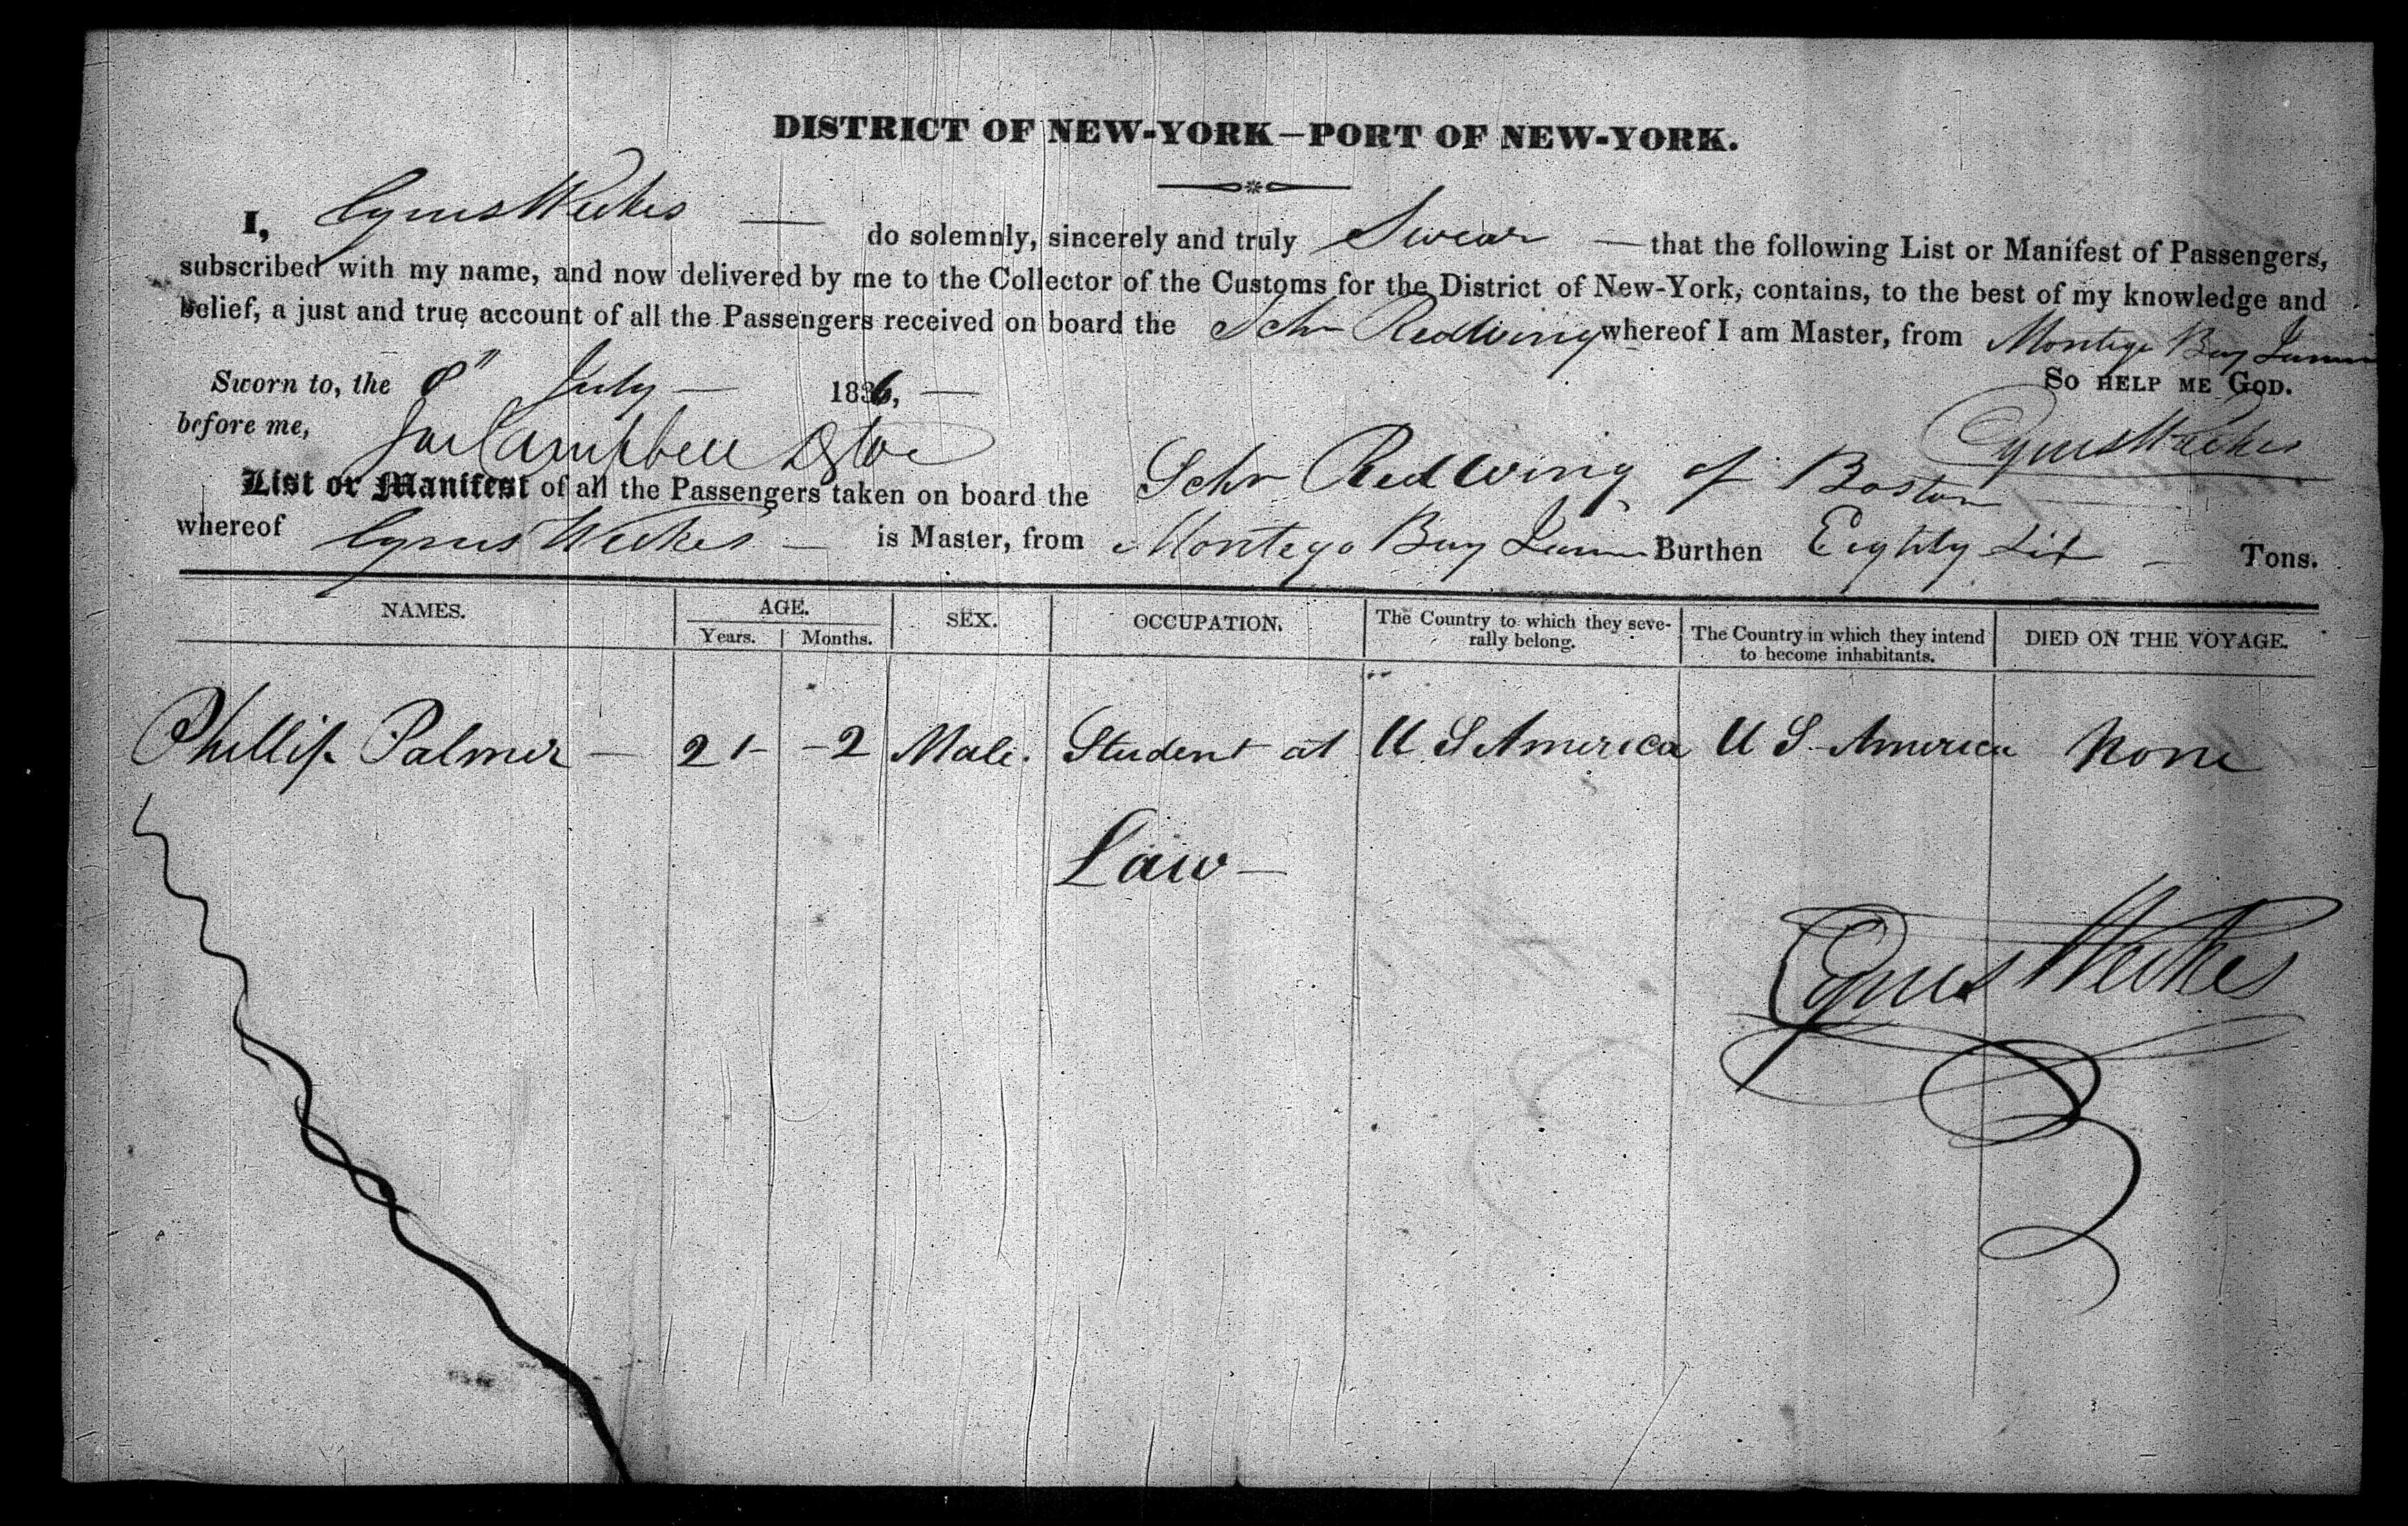 DISTRICT OF NEW-YORK—PORT OF NEW-YORK.
I, Cyrus Weekes — do solemnly, sincerely and truly Swear — that the following List or Manifest of Passengers,
subscribed with my name, and now delivered by me to the Collector of the Customs for the District of New-York, contains, to the best of my knowledge and
belief, a just and true account of all the Passengers received on board the Schr Redwing whereof I am Master, from Montego Bay
Sworn to, the 8" July — 1836, — So HELP ME GOD.
before me, Campbell Cyrus Weekes
List or Manifest of all the Passengers taken on board the Schr Redwing of Boston
whereof Cyrus Weekes — is Master, from Montego Bay Burthen Eighty Six — Tons.
NAMES. AGE. SEX. OCCUPATION. The Country to which they seve-
rally belong. The Country in which they intend
to become inhabitants. DIED ON THE VOYAGE.
Years. Months.
Phillip Palmer — 21 - - 2 Male. Student at U S America U S America None
Law —
Cyrus Weekes